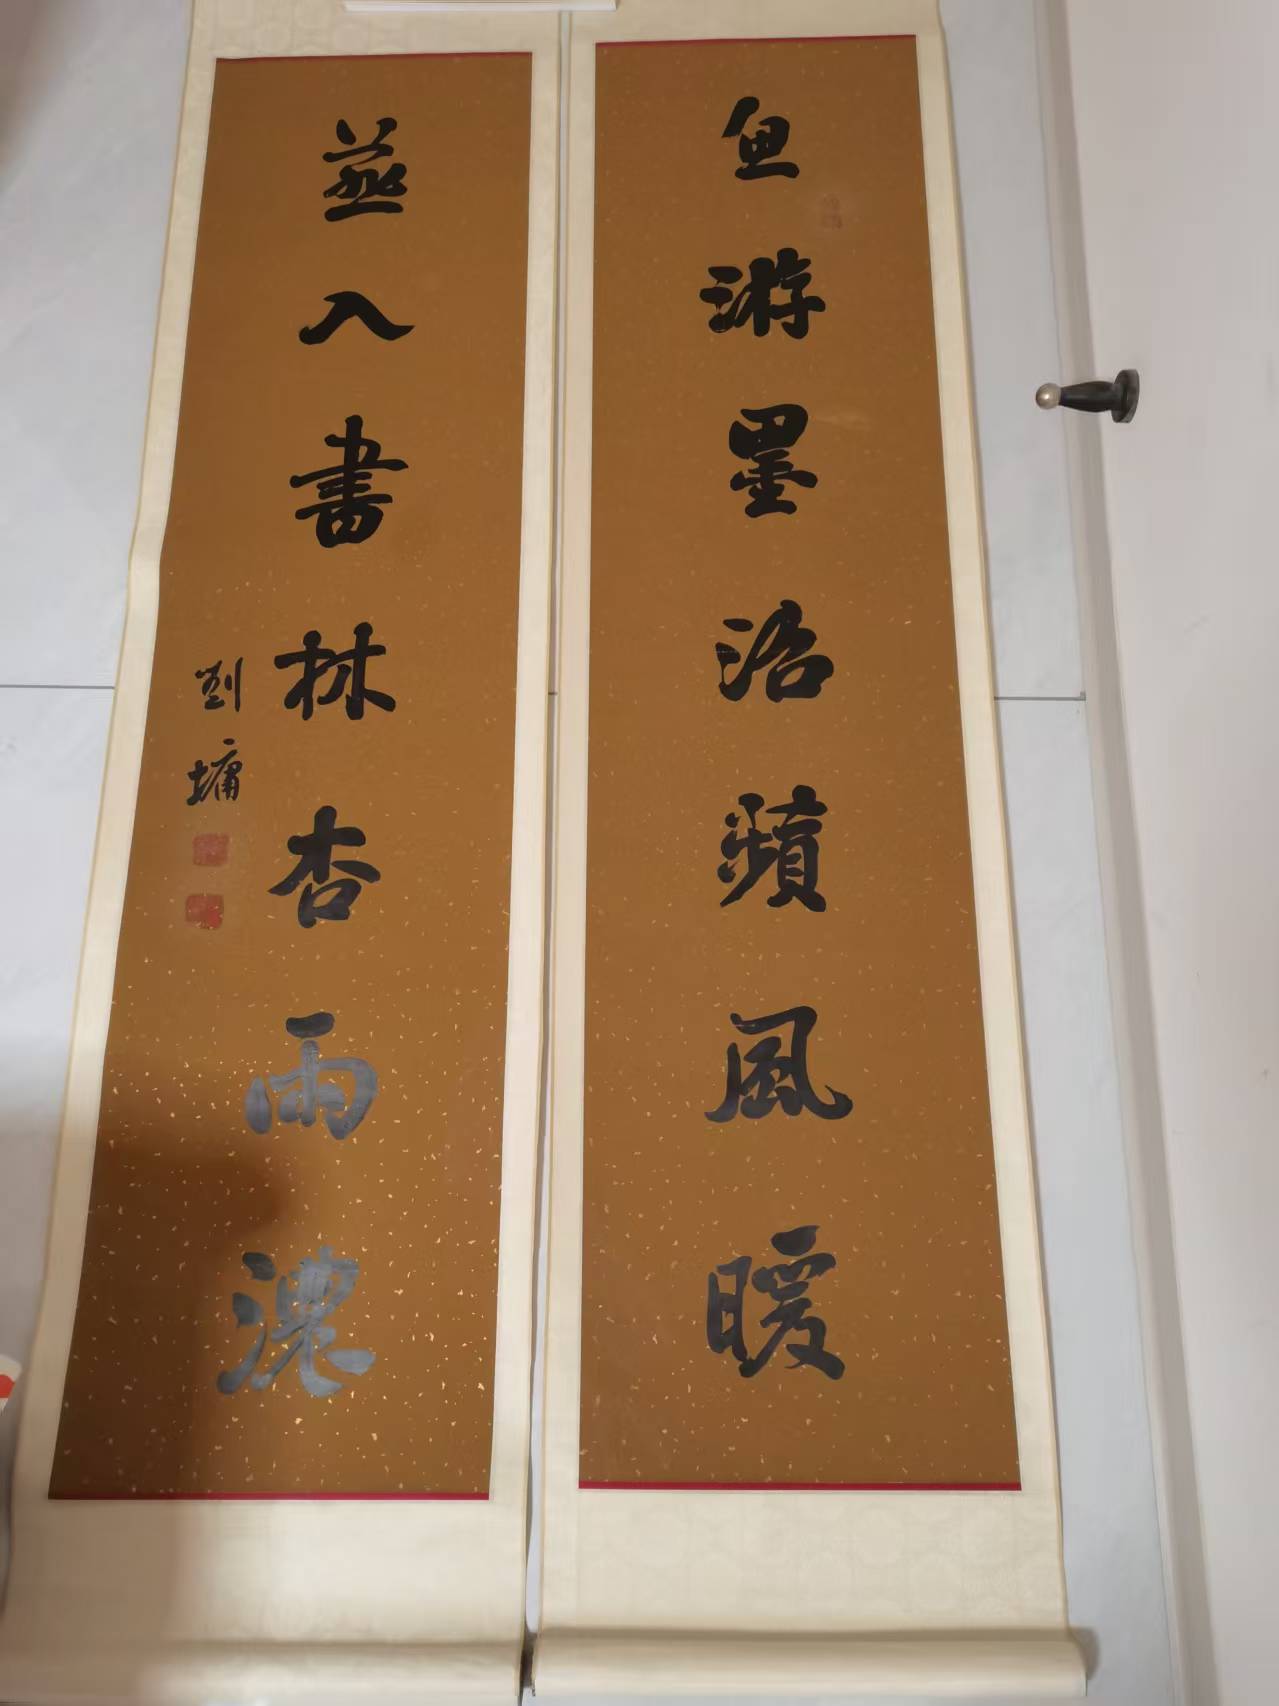 鱼游墨沼蘋風暖
燕入書林杏雨濃
劉墉